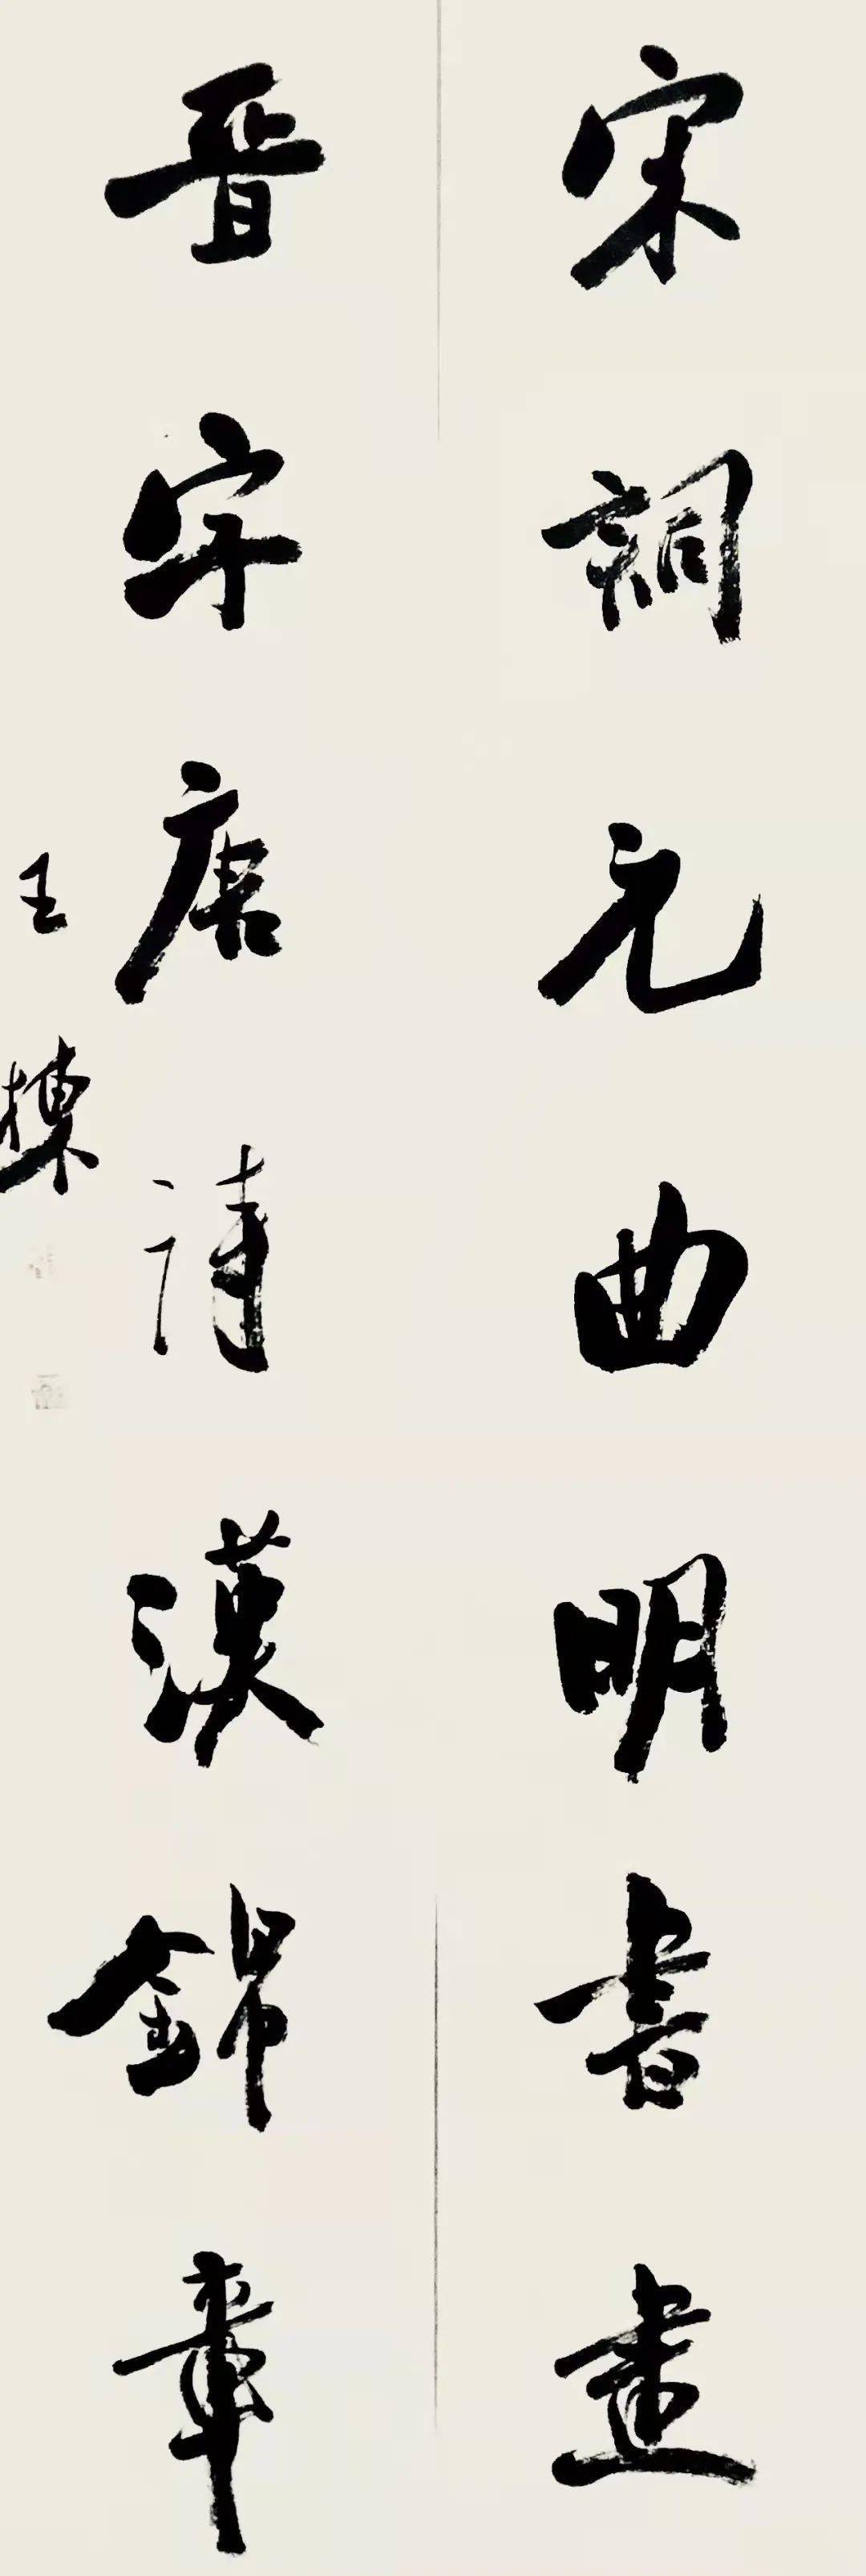 宋詞元曲明書畫
晉字唐詩漢錦章
王棟